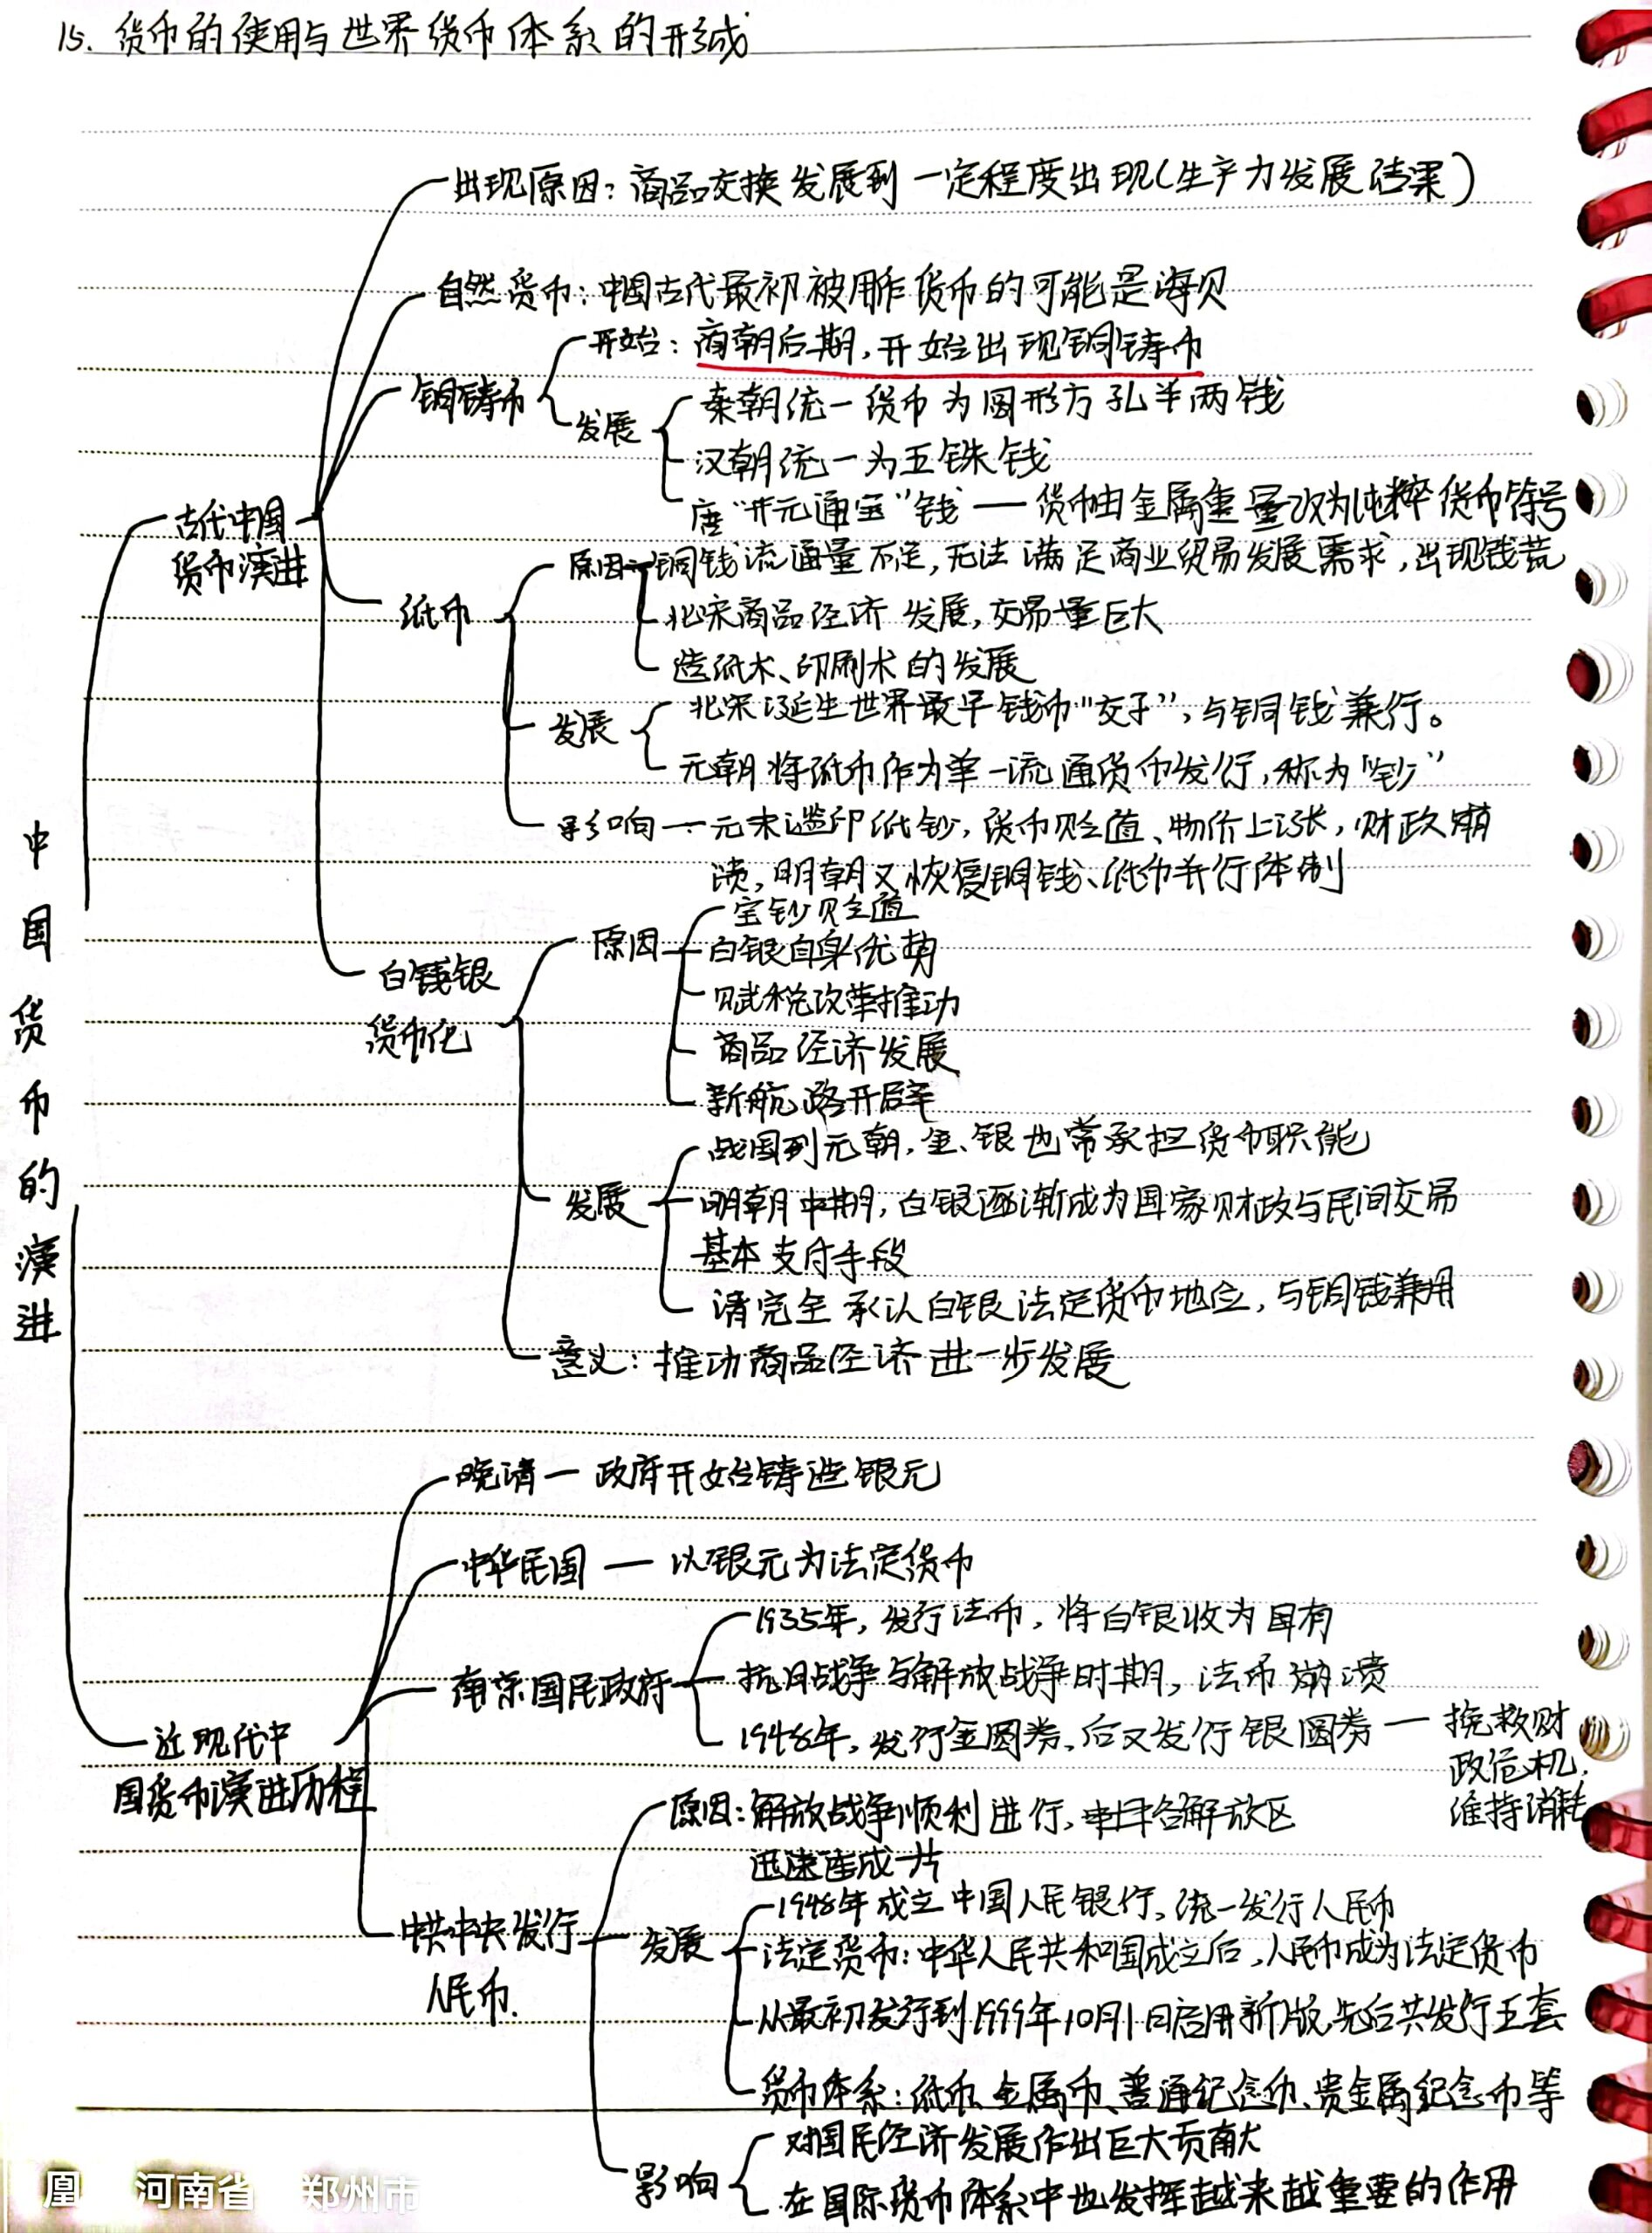 15. 货币的使用与世界货币体系的形成
出现原因：商品交换发展到一定程度出现（生产力发展结果）
自然货币：中国古代最初被用作货币的可能是海贝
铜铸币
开始：商朝后期，开始出现铜铸币
发展
秦朝统一货币为圆形方孔半两钱
汉朝统一为五铢钱
唐“开元通宝”钱——货币由金属重量改为纯粹货币符号
古代中国
货币演进
纸币
原因
铜钱流通量不足，无法满足商业贸易发展需求，出现钱荒
北宋商品经济发展，交易量巨大
造纸术、印刷术的发展
发展
北宋诞生世界最早钱币“交子”，与铜钱兼行。
元朝将纸币作为单一流通货币发行，称为“钞”
影响—元末滥印纸钞，货币贬值、物价上涨，财政崩
溃，明朝又恢复铜钱、纸币并行体制
白银
货币化
原因
宝钞贬值
白银自身优势
赋税改革推动
商品经济发展
新航路开辟
发展
战国到元朝，金、银也常承担货币职能
明朝中期，白银逐渐成为国家财政与民间交易
基本支付手段
清完全承认白银法定货币地位，与铜钱兼用
意义：推动商品经济进一步发展
中国货币的演进
晚清—政府开始铸造银元
中华民国—以银元为法定货币
南京国民政府
1935年，发行法币，将白银收为国有
抗日战争与解放战争时期，法币崩溃
1948年，发行金圆券，后又发行银圆券—挽救财
政危机，
维持消耗
近现代中
国货币演进历程
中共中央发行
人民币.
原因：解放战争顺利进行，各解放区
迅速连成一片
发展
1948年成立中国人民银行，统一发行人民币
法定货币：中华人民共和国成立后，人民币成为法定货币
从最初发行到1999年10月1日启用新版，先后共发行五套
货币体系：纸币、金属币、普通纪念币、贵金属纪念币等
影响
对国民经济发展作出巨大贡献
在国际货币体系中也发挥越来越重要的作用
凰 河南省 郑州市